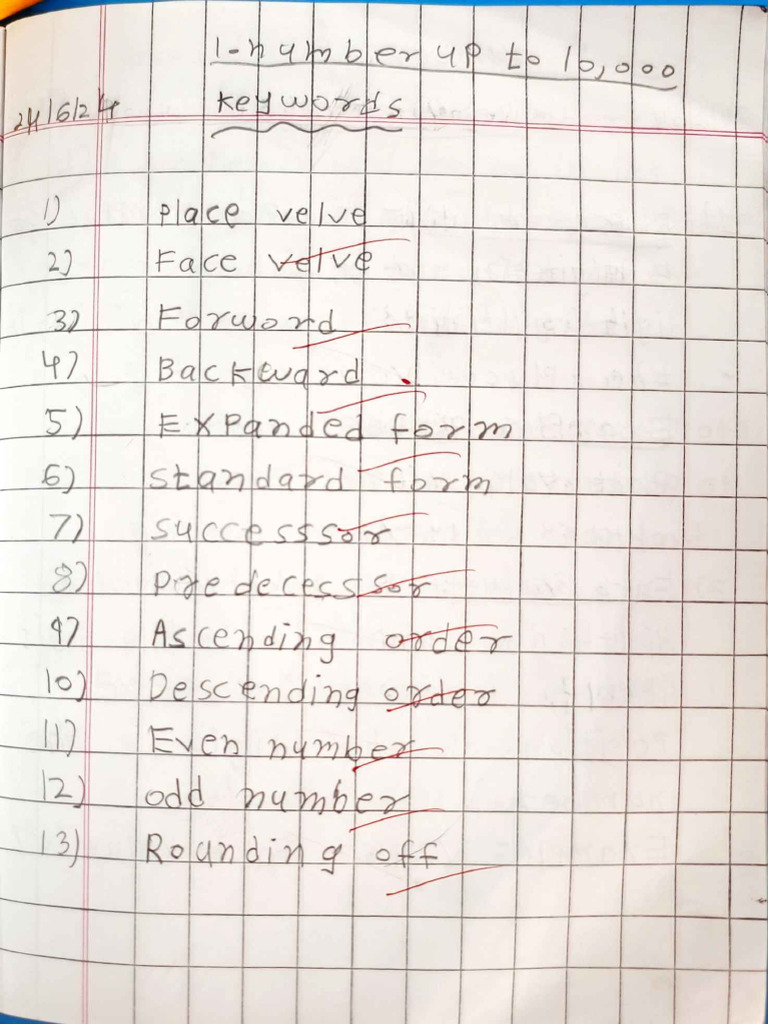 1-number up to 10,000
keywords
24/6/24
1) Place velve
2) Face velve
3) Forword
4) Backward
5) Expanded form
6) standard form
7) successsor
8) Predecesssor
9) Ascending order
10) Descending order
11) Even number
12) odd number
13) Rounding off